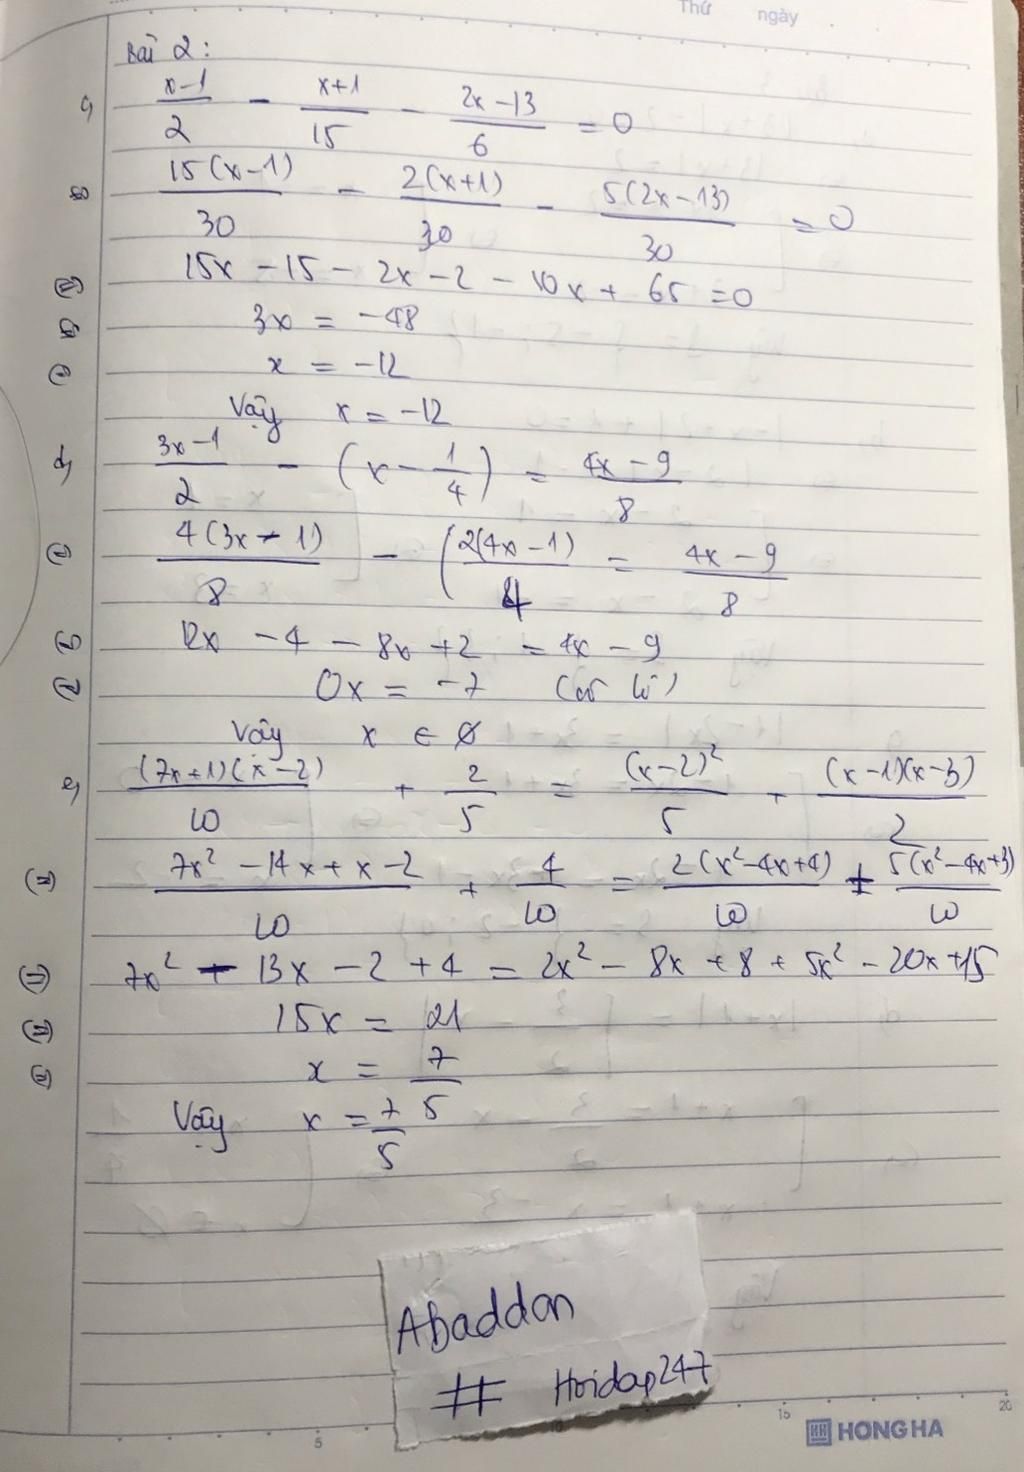 Thứ ngày
Bài 2:
c, (x-1)/2 - (x+1)/15 - (2x-13)/6 = 0
⇔ 15(x-1)/30 - 2(x+1)/30 - 5(2x-13)/30 = 0
⇔ 15x - 15 - 2x - 2 - 10x + 65 = 0
⇔ 3x = -48
⇔ x = -12
Vậy x = -12
d, (3x-1)/2 - (x - 1/4) = (4x-9)/8
⇔ 4(3x-1)/8 - (2(4x-1)/4 = (4x-9)/8
⇔ 12x - 4 - 8x + 2 = 4x - 9
⇔ 0x = -7 (vô lí)
Vậy x ∈ ∅
e, (7x+1)(x-2)/10 + 2/5 = (x-2)²/5 + (x-1)(x-3)/2
⇔ (7x² - 14x + x - 2)/10 + 4/10 = 2(x²-4x+4)/10 + 5(x²-4x+3)/10
⇔ 7x² - 13x - 2 + 4 = 2x² - 8x + 8 + 5x² - 20x + 15
⇔ 15x = 21
⇔ x = 7/5
Vậy x = 7/5
Abaddon
# Hoidap247
5 10 15 20
HH HONG HA